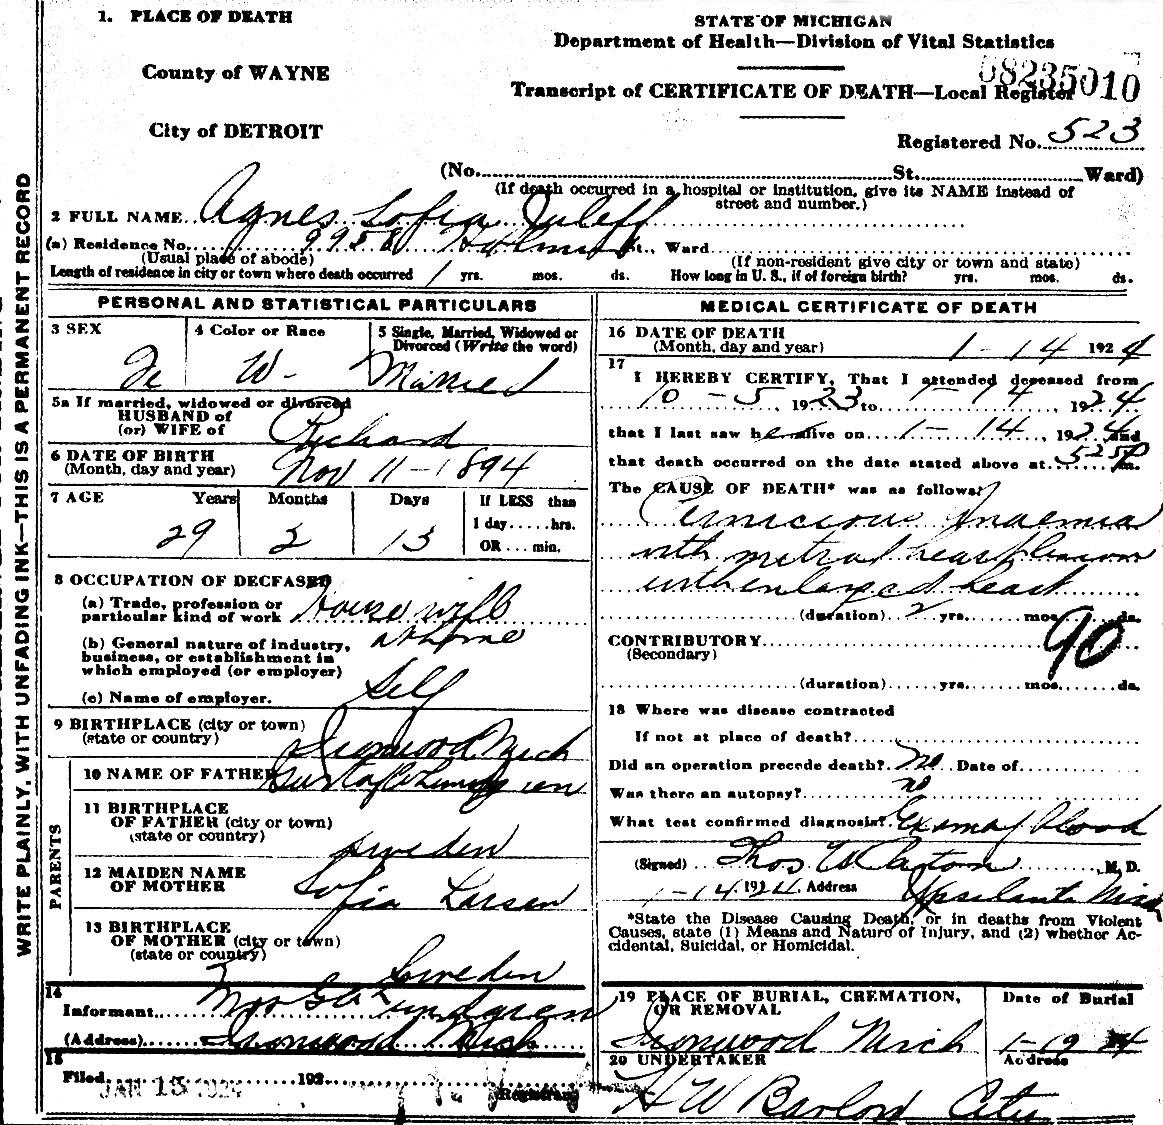 1. PLACE OF DEATH
County of WAYNE
City of DETROIT
STATE OF MICHIGAN
Department of Health—Division of Vital Statistics
58235010
Transcript of CERTIFICATE OF DEATH—Local Register
Registered No. 523
(No. St. Ward)
(If death occurred in a hospital or institution, give its NAME instead of
street and number.)
2 FULL NAME Agnes Sofia Juleff
(a) Residence No. 9958 St., Ward
(Usual place of abode) (If non-resident give city or town and state)
Length of residence in city or town where death occurred 1 yrs. mos. ds. How long in U. S., if of foreign birth? yrs. mos. ds.
PERSONAL AND STATISTICAL PARTICULARS
3 SEX 4 Color or Race 5 Single, Married, Widowed or
Divorced (Write the word)
Fe W- Married
5a If married, widowed or divorced
HUSBAND of
(or) WIFE of Richard
6 DATE OF BIRTH
(Month, day and year) Nov 11-1894
7 AGE Years Months Days If LESS than
1 day.....hrs.
OR...min.
29 2 13
8 OCCUPATION OF DECEASED
(a) Trade, profession or
particular kind of work Housewife
(b) General nature of industry, at home
business, or establishment in
which employed (or employer)
(c) Name of employer. Self
9 BIRTHPLACE (city or town)
(state or country) Ironwood Mich
PARENTS
10 NAME OF FATHER Gustaf
11 BIRTHPLACE
OF FATHER (city or town)
(state or country) Sweden
12 MAIDEN NAME
OF MOTHER Sofia Larsen
13 BIRTHPLACE
OF MOTHER (city or town)
(state or country) Sweden
14
Informant Mrs Lundgren
(Address) Ironwood Mich.
15
Filed JAN 15 1924 192 Registrar
MEDICAL CERTIFICATE OF DEATH
16 DATE OF DEATH
(Month, day and year) 1-14 1924
17
I HEREBY CERTIFY, That I attended deceased from
10-5, 1923 to 1-14, 1924
that I last saw her alive on 1-14, 1924 and
that death occurred on the date stated above at 525P m.
The CAUSE OF DEATH* was as follows:
Pernicious Anaemia
with mitral heart lesion
with enlarged heart
(duration) 2 yrs. mos. ds.
CONTRIBUTORY
(Secondary)
90
(duration) yrs. mos. ds.
18 Where was disease contracted
If not at place of death?
Did an operation precede death? no Date of
Was there an autopsy? no
What test confirmed diagnosis? Exam of blood
(Signed) Thos W Clayton, M. D.
1-14, 1924 Address Ypsilanti Mich
*State the Disease Causing Death, or in deaths from Violent
Causes, state (1) Means and Nature of Injury, and (2) whether Ac-
cidental, Suicidal, or Homicidal.
19 PLACE OF BURIAL, CREMATION,
OR REMOVAL Date of Burial
Ironwood Mich 1-19 24
20 UNDERTAKER Address
H W Barlow City
WRITE PLAINLY, WITH UNFADING INK—THIS IS A PERMANENT RECORD